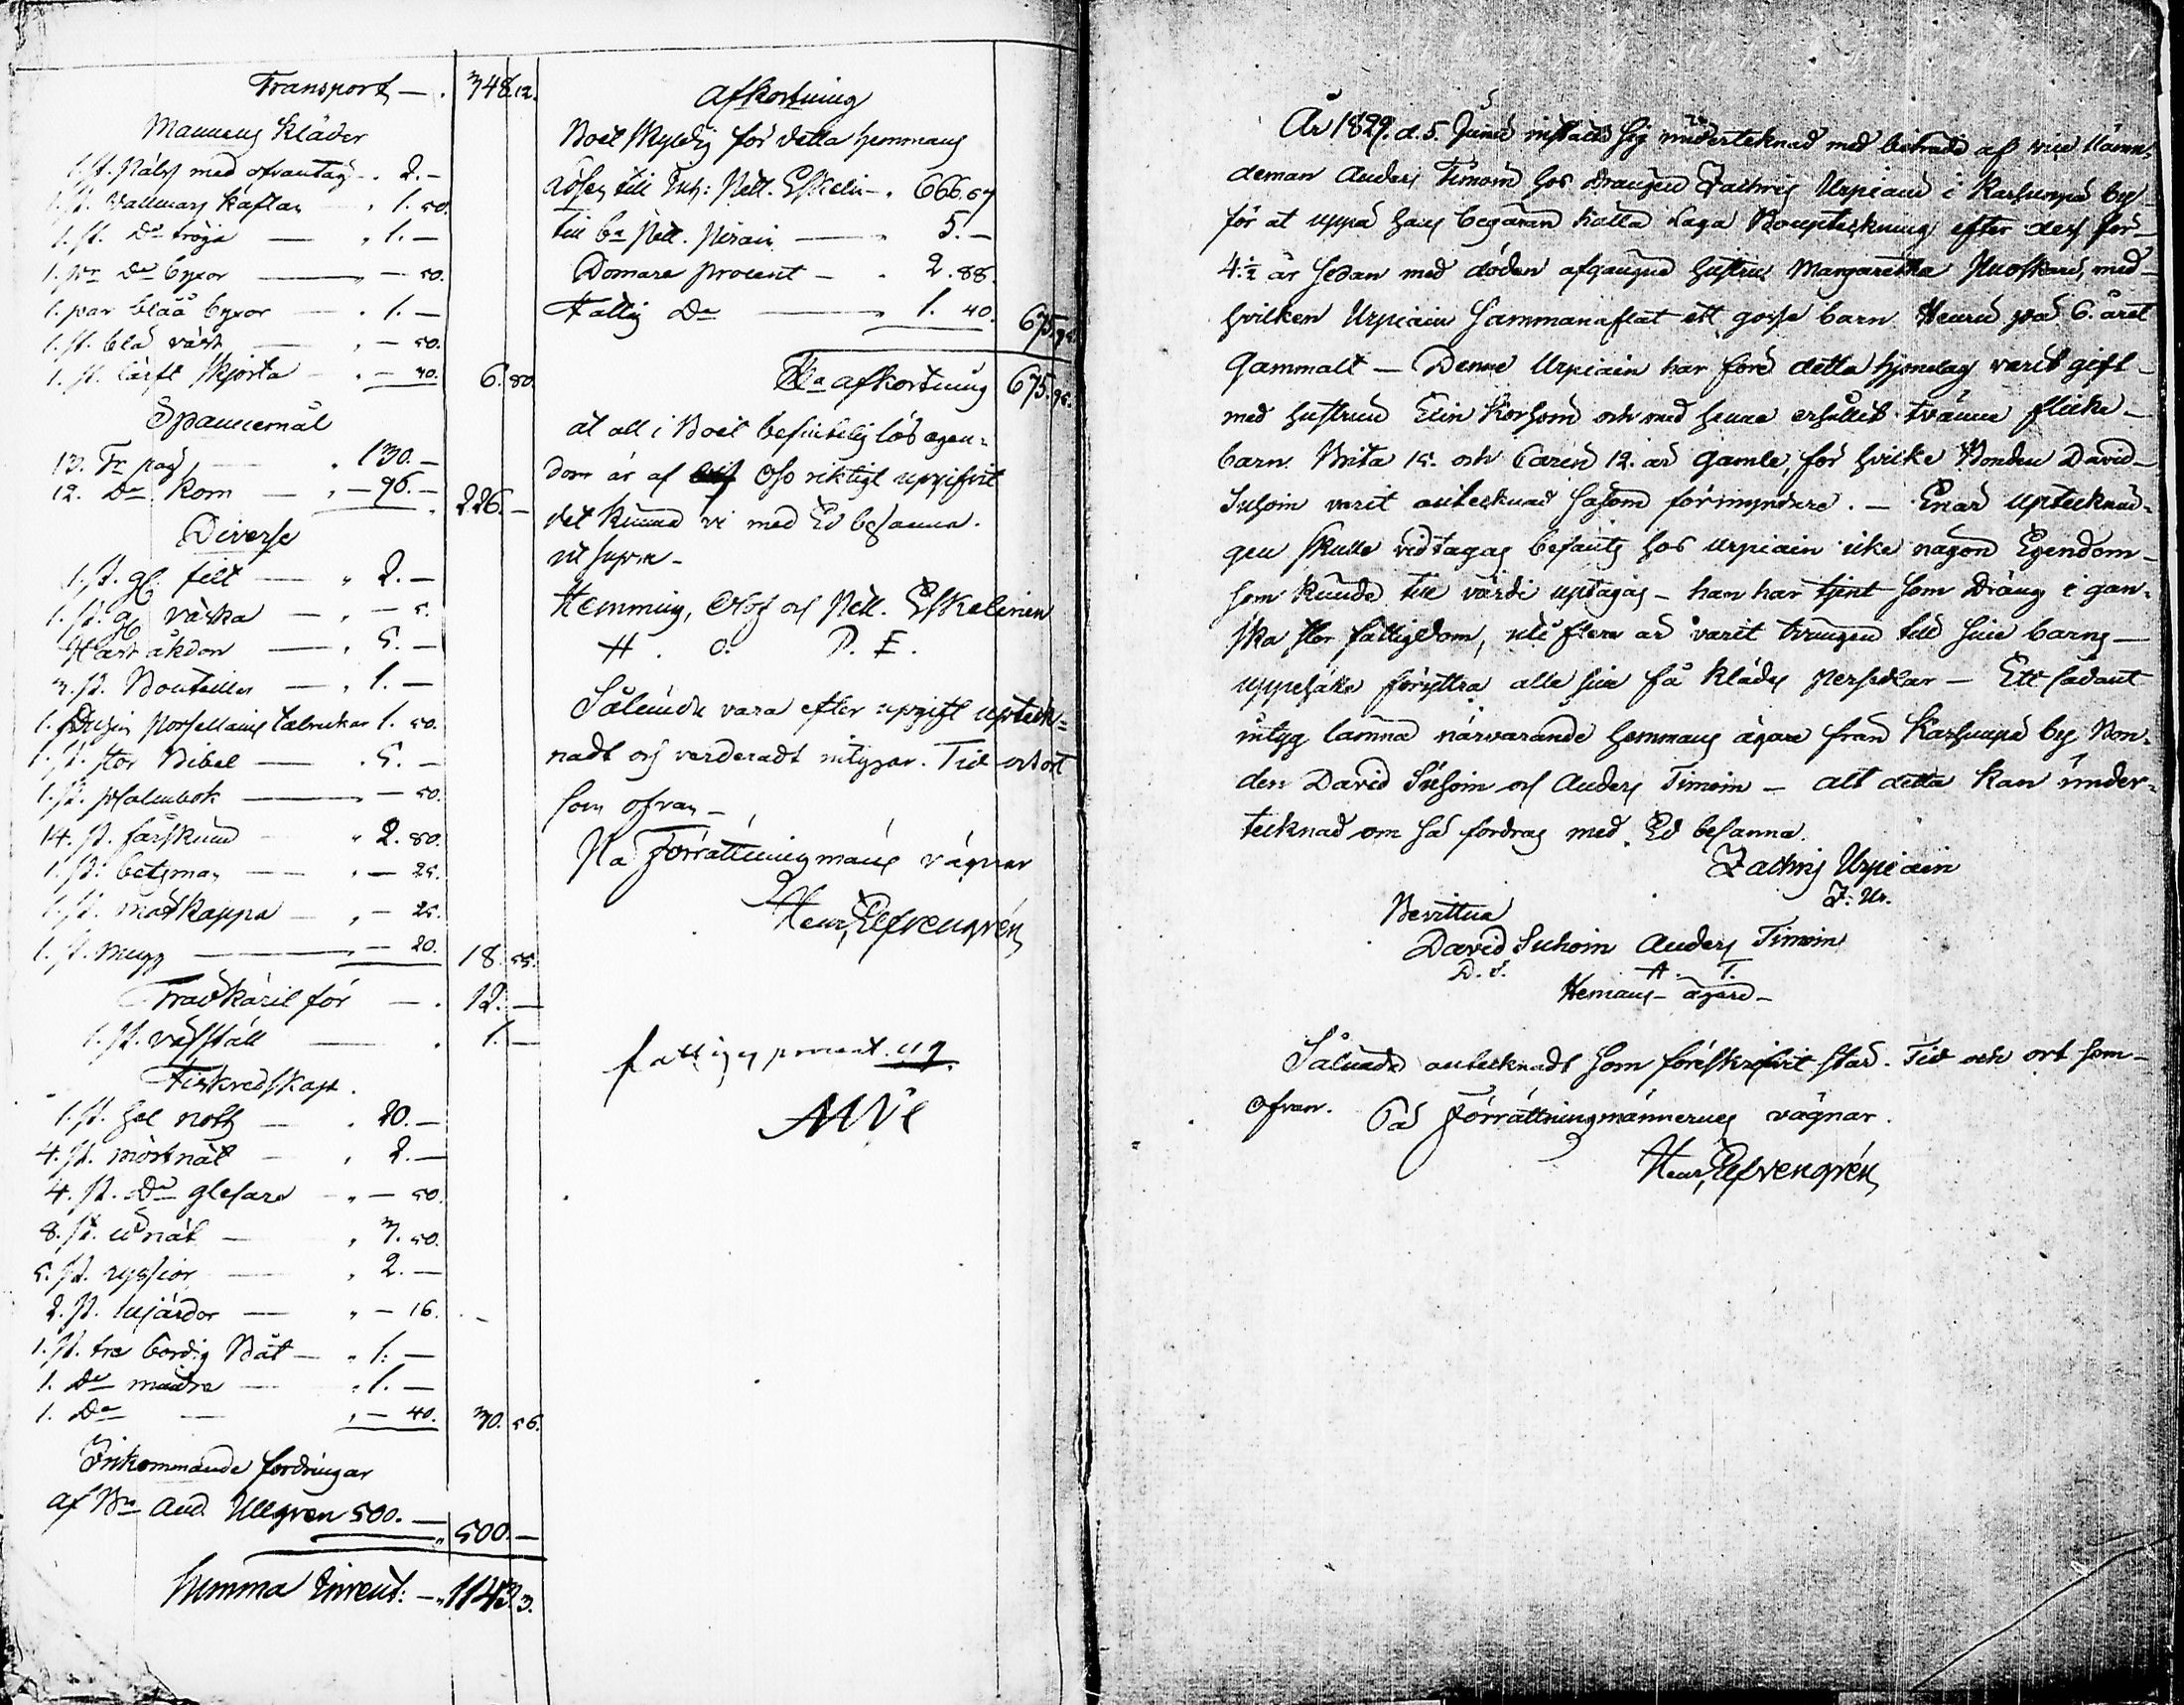 Transport — . 348.12.
Mannens Kläder
1. st. Päls med ofvantag . 2. —
1. st. Vallmars kaftan . 1. 50.
1. st. Do tröja — " 1. —
1. pr Do byxor — — 50.
1. par blåå byxor — . 1. —
1. st. blå väst — " — 50.
1. st. lärft skjorta — " — 40. 6. 80.
Spannemål
13. Tr råg — " 130. —
12. Do Korn — " — 96. — 226. —
Diverse
1. st. gl. felt — " 2. —
1. st. gl. väska — " — 5.
Häst åkdon — " 5. —
3. st. Bouteiller — " 1. —
1. Dusin Porsellains talrickar 1. 50.
1. st. stor Bibel — . 5. —
1. st. psalmbok — — 50.
14. st. fårskinn " 2. 80.
1. st. betsman — " — 25.
1. st. matkappa — " — 25.
1. st. mugg — — 20. 18. 55.
Trädkäril för — . 12. —
1. st. väfställ — . 1. —
Fiskredskap.
1. st. hel noth — . 20. —
4. st. mörtnät — " 2. —
4. st. Do glesare — " — 50.
8. st. id nät — " 3. 50.
5. st. ryssior — " 2. —
2. st. — " — 16.
1. st. tre bordig Båt — " 1. —
1. Do mindre — " 1. —
1. Do — " — 40. 30. 56.
Inkommande fordringar
af Bn And. Ullgren 500. — 500. —
Summa Invent: — " 1143. 3.
Afkortning
Boet skyldig för detta hemmans
lösen till Inh: Pett. Eskelin — . 666. 67
till bn Pett. — " 5. —
Domare procent — . 2. 88.
Fattig Do — " 1. 40. 675. 95.
Sa afkortning 675. 95.
at all i Boet befintelig lös egen-
dom är af Oss riktigt uppgifvit
det kunna vi med Ed besanna.
ut supra —
Hemming, Olof och Pett. Eskelinen
H. O. P. E.
Således vara efter uppgift upteck-
nadt och värderadt intygar. Tid och ort
som ofvan —
På Förrättningsmäns vägnar
Henr. Elfvengrén
fattiges procent
År 1829. d. 5. Junii instälte sig undertecknad med biträde af vice Nämn-
deman Anders Timoin hos Drängen Zachris Urpiain i Karsunpå by
för at uppå hans begäran hålla Laga Bouptekning efter dess för
4 ½ år sedan med döden afgångne hustru Margaretha Huoskain, med
hvilken Urpiain sammanaflat ett gosse barn Henric på 6. året
Gammalt — Denne Urpiain har före detta hjonelag varit gift
med hustrun Elin Korhoin och med henne erhållit tvänne flicke-
barn Brita 15. och Carin 12. år Gamle, för hvilke Bonden David
Suhoin varit antecknad såsom förmyndare. — Enär uptecknin-
gen skulle vidtagas befants hos Urpiain icke någon Egendom
som kunde till värde uptagas — han har tjent som Dräng i gan-
ska stor fattigdom, uti flere år varit tvungen till sine barns
uppehälle försittra alla sine få kläds persedlar — Ett sådant
intyg lämna närvarande hemmans ägare från Karsunpå by Bon-
den David Suhoin och Anders Timoin — alt detta kan under-
tecknad om så fordras med Ed besanna.
Zachris Urpiain
Z. Ur.
Bevittna
David Suhoin Anders Timoin
D. S. A. T.
Hemans ägare —
Således antecknadt som föreskrifvit står. Tid och ort som
ofvan. På Förrättningsmännernes vägnar.
Henr. Elfvengrén